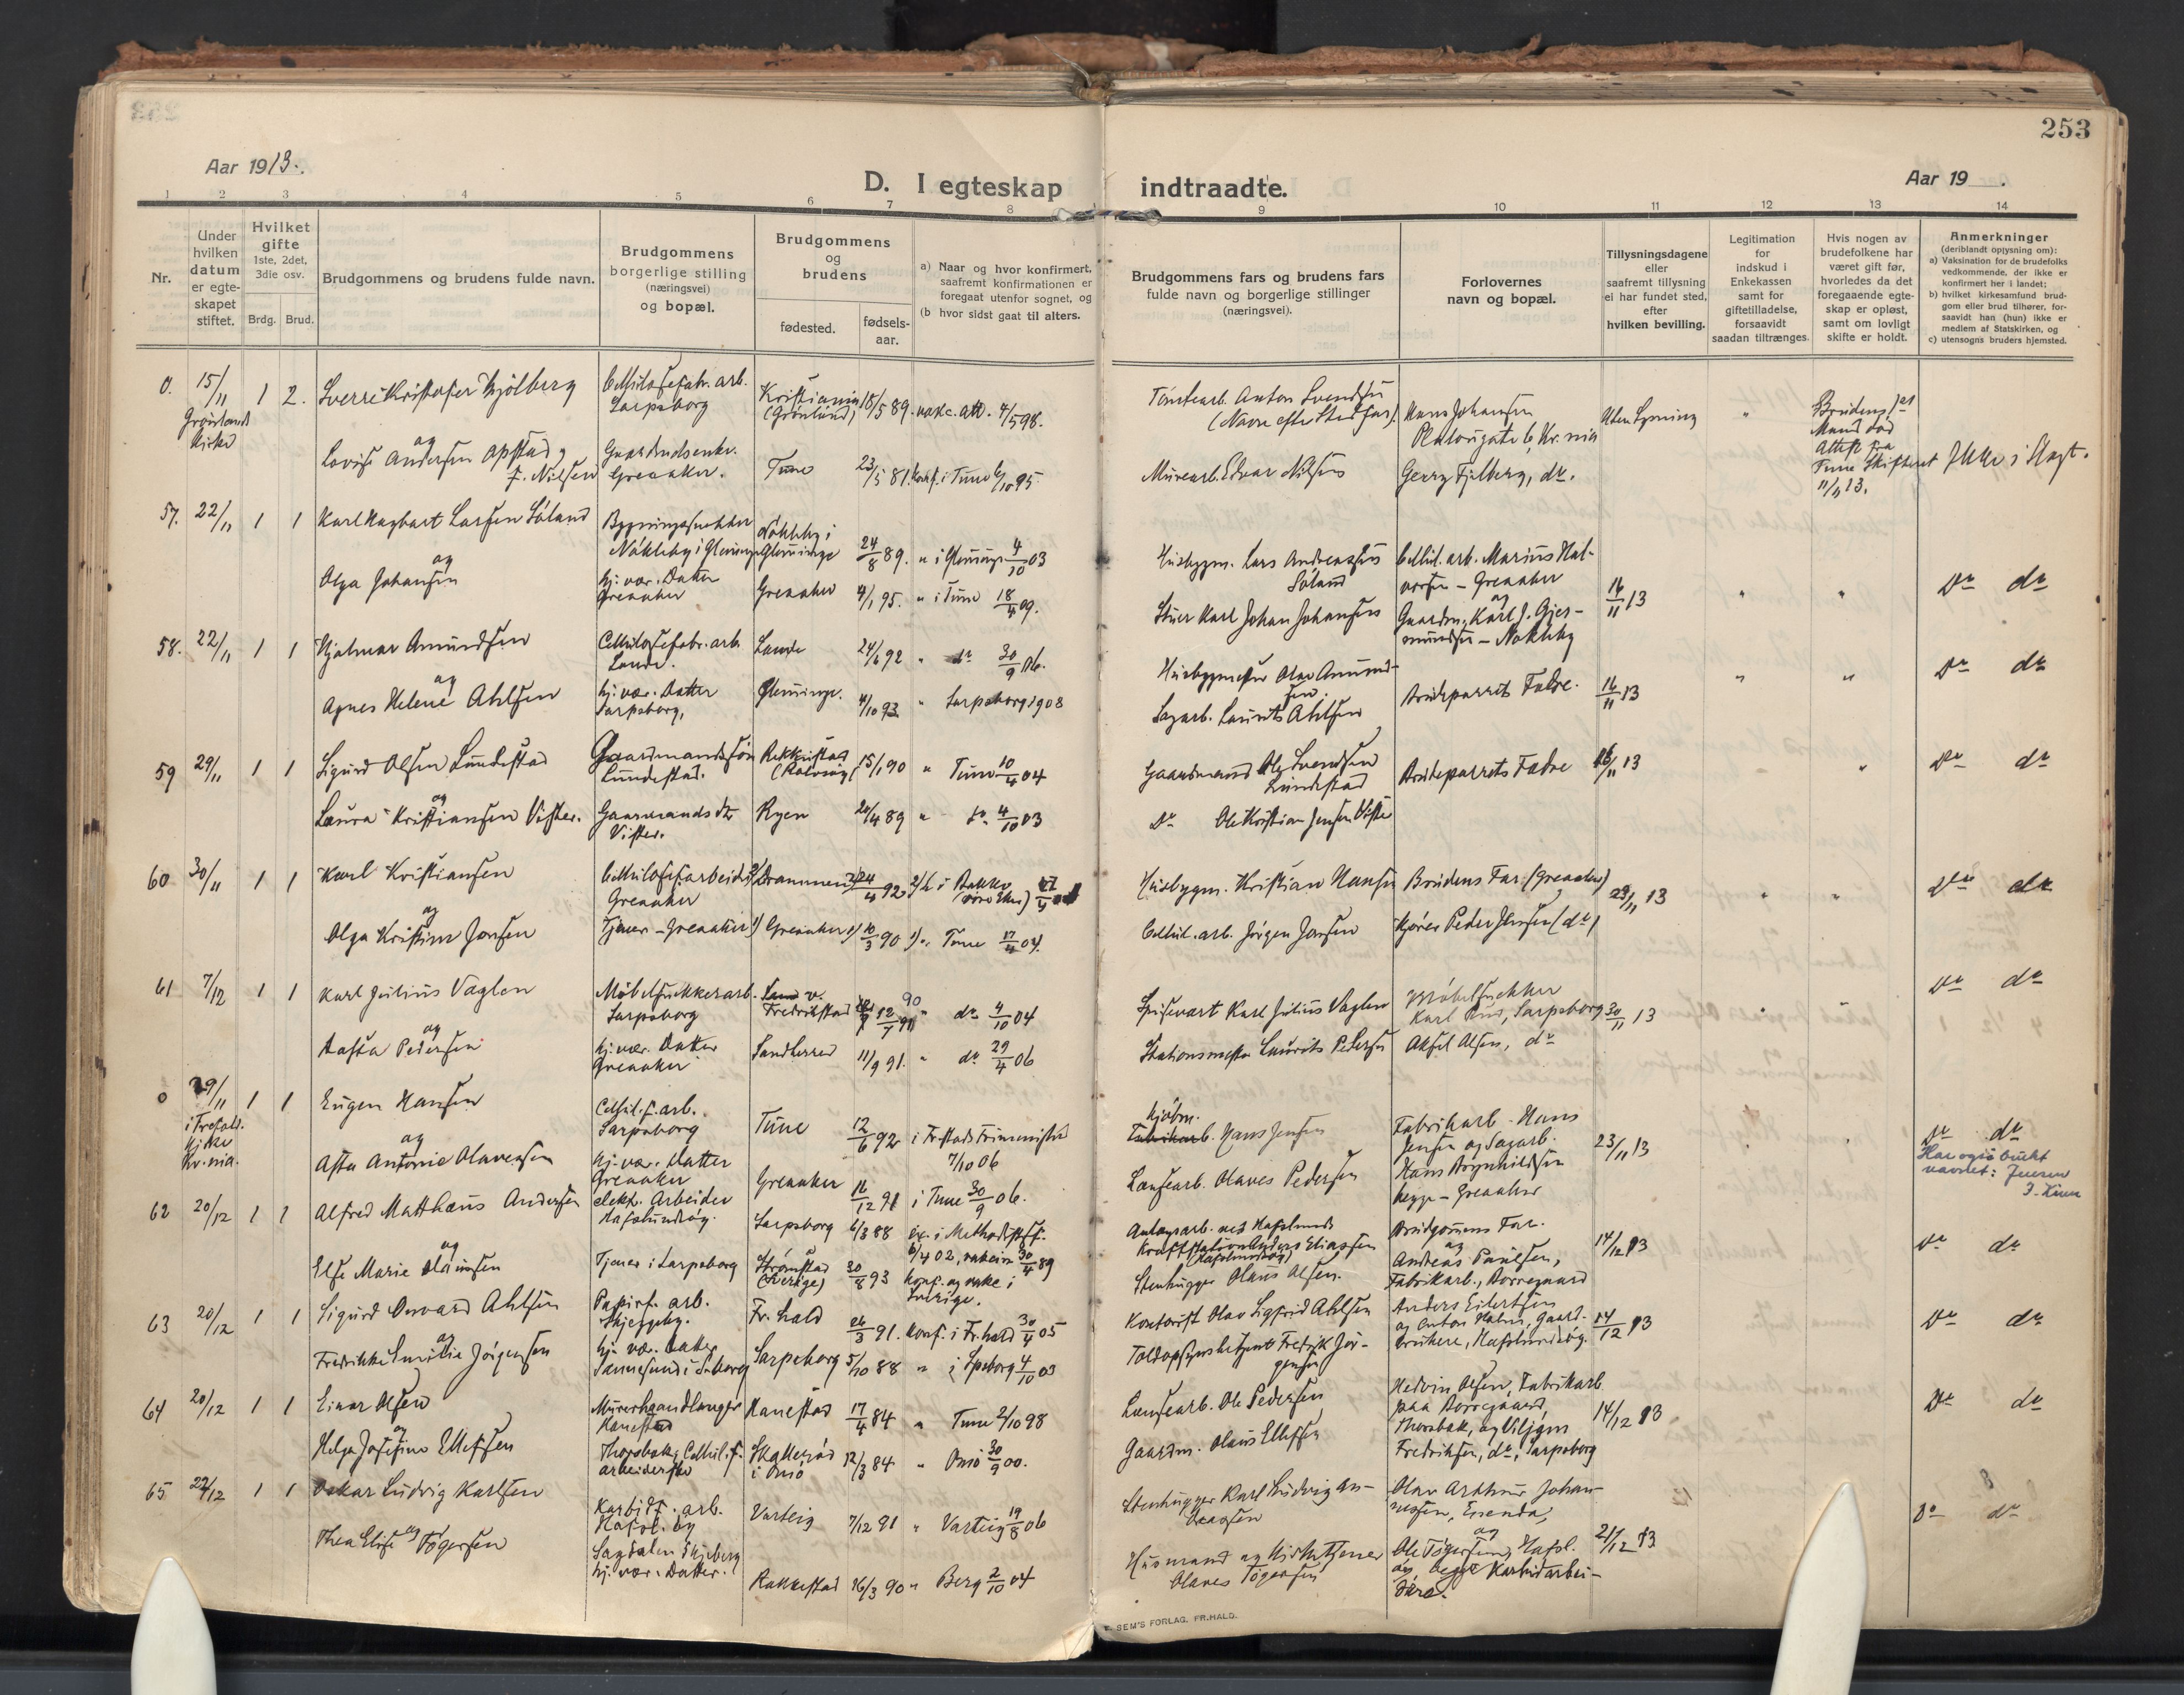 253
Aar 1913.
D. I egteskap indtraadte.
Aar 19 .
1 2 3 4 5 6 7 8 9 10 11 12 13 14
Nr.
Under hvilken datum er egteskapet stiftet.
Hvilket gifte 1ste, 2det, 3die osv.
Brdg. Brud.
Brudgommens og brudens fulde navn.
Brudgommens borgerlige stilling (næringsvei) og bopæl.
Brudgommens og brudens
fødested.
fødsels-aar.
a) Naar og hvor konfirmert, saafremt konfirmationen er foregaat utenfor sognet, og
(b hvor sidst gaat til alters.
Brudgommens fars og brudens fars fulde navn og borgerlige stillinger (næringsvei).
Forlovernes navn og bopæl.
Tillysningsdagene eller saafremt tillysning ei har fundet sted, efter hvilken bevilling.
Legitimation for indskud i Enkekassen samt for giftetilladelse, forsaavidt saadan tiltrænges.
Hvis nogen av brudefolkene har været gift før, hvorledes da det foregaaende egteskap er opløst, samt om lovligt skifte er holdt.
Anmerkninger (deriblandt opjysning om):
a) Vaksination for de brudefolks vedkommende, der ikke er konfirmert her i landet;
b) hvilket kirkesamfund brudgom eller brud tilhører, forsaavidt han (hun) ikke er medlem af Statskirken, og
c) utensogns bruders hjemsted.
0. 15/11 1 2. Sverre Kristofer
Grønlands Kirke
Sarpsborg
Kristiania (Grønland) 18/5 89. vakc. att. 4/5 98.
Anton Svendsen
Hans Johansen
Uten Lysning "
Brudens 1ste Mand død Attest fra Tune Skifteret 11/11 13.
Ikke i Slegt.
og
Lovise Andersen Opstad, f. Nilsen
Greaaker.
Tune 23/5 81. Konf. i Tune 6/10 95.
Murearb. Edvar Nilsen
Georg Fjelberg, do.
57. 22/11 1 1 Karl Hagbart Larsen Söland
Bygningssnekker Nökleby i Glemminge
Nökleby i Glemminge 24/8 89. " i Glemminge 4/10 03
Husbygm. Lars Andreassen Söland
Cellul. arb. Marius Halvorsen - Greaaker
16/11 13 " " Do do
og
Olga Johansen
hj. vær. Datter Greaaker
Greaaker 4/1 95. " i Tune 18/4 09.
Stuer Karl Johan Johansen
og Gaardm. Karl J. Gjermundsen - Nökleby
58. 22/11 1 1 Hjalmar Amundsen
Cellulosefabr. arb. Lande.
Lande 24/6 92 " do 30/9 06.
Husbygmester Olav Amundsen
Brudeparrets Fædre.
16/11 13 " " Do do
og
Agnes Helene Ahlsen
hj. vær. Datter Sarpsborg,
Glemminge. 4/10 93 " Sarpsborg 1908
Sagarb. Laurits Ahlsen
59 29/11 1 1 Sigurd Olsen Lundestad
Gaardmandssön Lundestad.
(Rolvsöy) 15/1 90 " Tune 10/4 04
Gaardmand Ole Svendsen Lundestad
Brudeparrets Fædre
16/11 13 " Do do
og
Laura Kristiansen Vister.
Gaardmands dtr Vister.
Ryen 20/4 89 " do. 4/10 03
Do Ole Kristian Jensen Vister
60 30/11 1 1 Karl Kristiansen
Cellulosefarbeider Greaaker
Drammen 24/4 92
Husbygm. Kristian Hansen
Brudens Far. (Greaaker)
23/11 13 " " Do do
og
Olga Kristine Jonsen
Tjener - Greaaker
Greaaker 10/3 90 " Tune 17/4 04.
Cellul. arb. Jörgen Jonsen
Kjörer Peder Jensen (do)
61 7/12 1 1 Karl Julius Vaglen
Möbelsnekkerarb. Sarpsborg
Fredrikstad 12/7 90 " do 4/10 04
Spisevært Karl Julius Vaglen
Möbelsnekker Karl Lund, Sarpsborg
30/11 13 " " Do do
og
Aasta Pedersen
hj. vær. Datter Greaaker
Sandherred 11/9 91. " do 29/4 06
Stationsmester Laurits Pedersen
Aksel Olsen, do
0 29/11 1 1 Eugen Hansen
Kirke Kr.nia.
Cellul. f. arb. Sarpsborg
Tune 12/6 92 7/10 06
Kjöbm.
Fabrikarb. Hans Jensen
Fabrikarb. Hans Jensen og Sagarb. Hans Brynhildsen begge - Greaaker
23/11 13 " " Do do
Har også brukt navnet: Jensen
og
Asta Antonie Olavesen
hj. vær. Datter Greaaker
Greaaker 16/12 91 i Tune 30/9 06.
Lensearb. Olaves Pedersen
62 20/12 1 1 Alfred Matthæus Andersen
elekt. Arbeider Hafslundsöy.
Sarpsborg 6/3 88
Kraftstation Anders Eliassen (Hafslundsöy)
Brudgommens Far.
14/12 13 Do do
og
Else Marie Olaussen
Tjener i Sarpsborg
Strömstad (Sverige) 30/8 93 konf. og vakc. i Sverige.
Stenhugger Olaus Olsen.
og Andreas Paulsen, Fabrikarb., Borregaard
63 20/12 1 1 Sigurd Osvard Ahlsen
Papirf. arb. Skjeggeby.
Fr. hald 26/3 91. Konf. i Fr. hald 30/4 05
Kontorist Olav Sigfrid Ahlsen
Anders Eilertsen og Anton Holm, Gaardbrukere, Hafslundsöy.
14/12 13 Do do
og
Fredrikke Emilie Jörgensen
hj. vær. Datter Sannesund i S.borg
Sarpsborg 5/10 88 " i Spsborg 4/10 03
Toldopsynsbetjent Fredrik Jörgensen
64 20/12 1 1 Einar Olsen
Murerhaandlanger Hanestad
Hanestad 17/4 84 " Tune 2/10 98
Lensearb. Ole Pedersen
Hedvin Olsen, Fabrikarb. paa Borregaard, Thorsbak, og Viljam Fredriksen, do, Sarpsborg
14/12 13 Do do
og
Helga Josefine Ellefsen
Thorsbak, Cellul. f. arbeiderske
i Onsö 12/3 84 " Onsö 30/9 00.
Gaardm. Olaus Ellefsen
65 27/12 1 1 Oskar Ludvig Karlsen
Karbidf. arb. Hafsl. öy
Varteig 7/12 91 " Varteig 19/8 06
Stenhugger Karl Ludvig
Olav Arthur Johannessen,
21/12 13 Do do
Thea Elise og Tögersen
Sagdalen Skjeberg hj. vær. Datter.
Rakkestad 16/3 90 " Berg 2/10 04
Husmand og Kirketjener Olaves Tögersen
og Ole Tögersen, Hafsl. öy, begge Karbidarbeidere.
E. SEM'S FORLAG, FR.HALD.